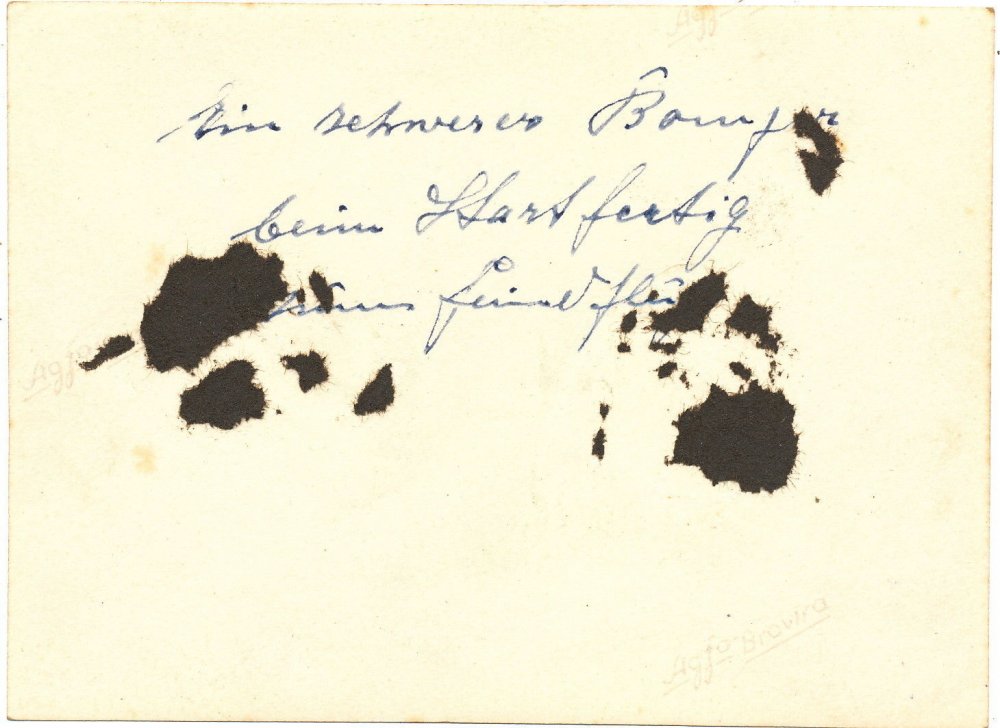 Agf
Ein schwerer Bom
beim Start fertig
zum Feindflu
Agfa
Agfa-Brovira